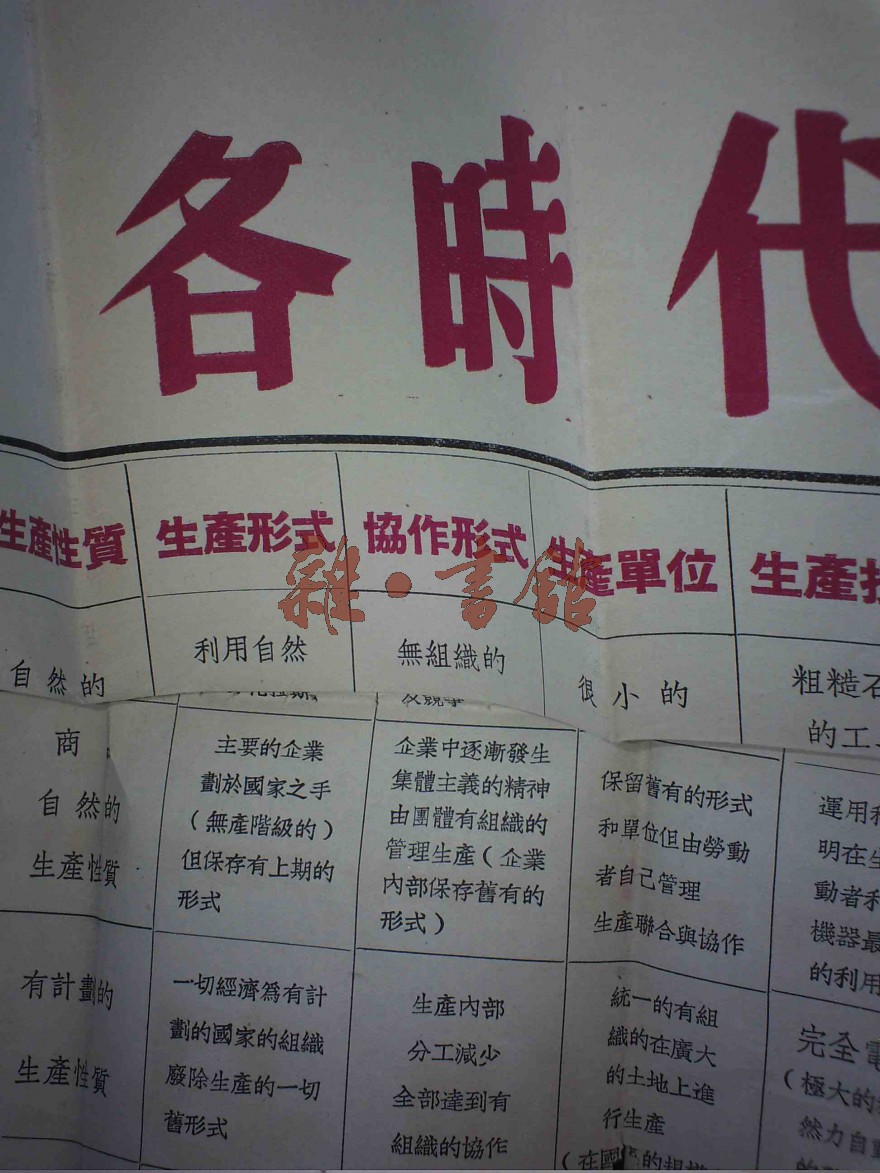 各時代
生產性質
生產形式
協作形式
生產單位
生產
自然的
利用自然
無組織的
很小的
粗糙石
的工
商
自然的
生產性質
主要的企業
劃於國家之手
（無產階級的）
但保存有上期的
形式
企業中逐漸發生
集體主義的精神
由團體有組織的
管理生產（企業
內部保存舊有的
形式）
保留舊有的形式
和單位但由勞動
者自己管理
生產聯合與協作
運用
明在
動者
機器最
的利用
有計劃的
生產性質
一切經濟為有計
劃的國家的組織
廢除生產的一切
舊形式
生產內部
分工減少
全部達到有
組織的協作
統一的有組
織的在廣大
的土地上進
行生產
完全電
（極大的
然力自
雜·書館